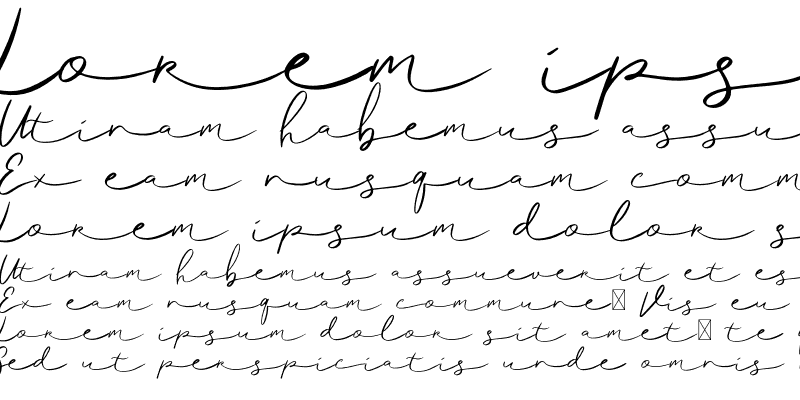 Lorem ips
Utinam habemus assu
Ex eam nusquam comm
Lorem ipsum dolor s
Utinam habemus assueverit et es
Ex eam nusquam commune▯ Vis eu
Lorem ipsum dolor sit amet▯ te
Sed ut perspiciatis unde omnis